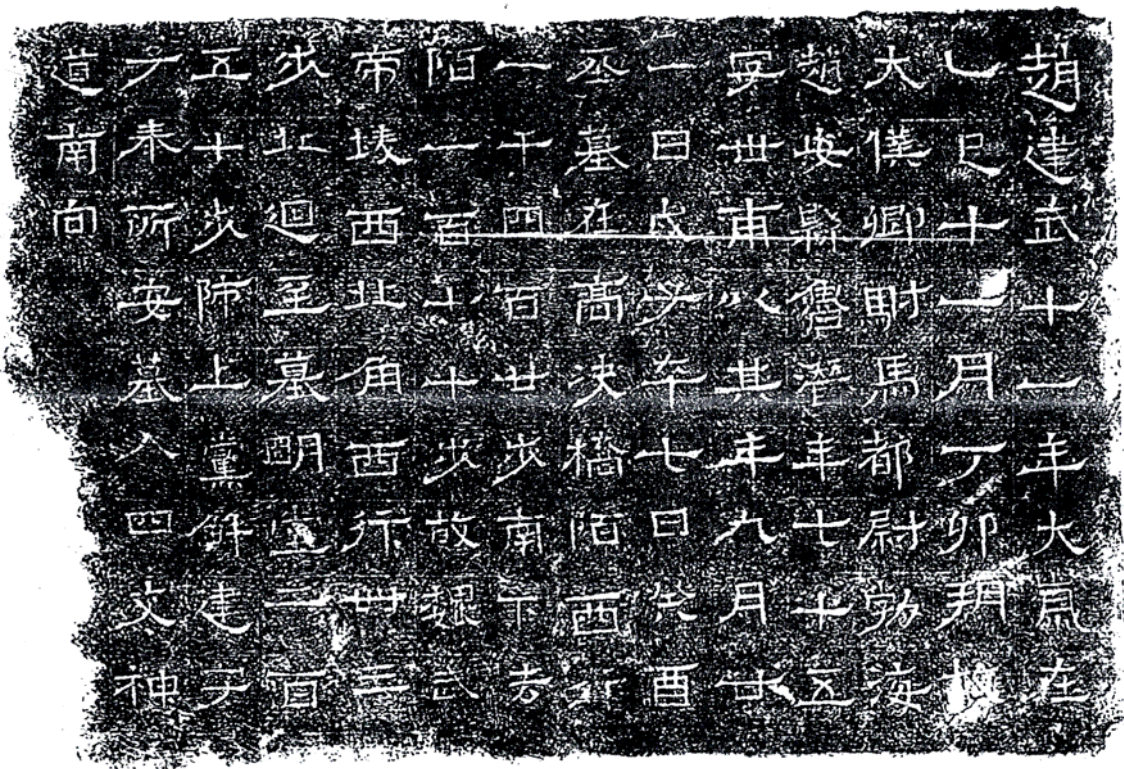 趙建武十一年大歲在
乙巳十一月丁卯朔故
大僕卿駙馬都尉勃海
趙安縣魯潛年七十五
字世甫以其年九月廿
一日戊子卒七日癸酉
葬墓在高決橋陌西行
一千四百廿步南下去
陌一百七十步故魏武
帝陵西北角西行卌三
步北迴至墓明堂二百
五十步師上黨解建字
子奇所安墓入四丈神
道南向